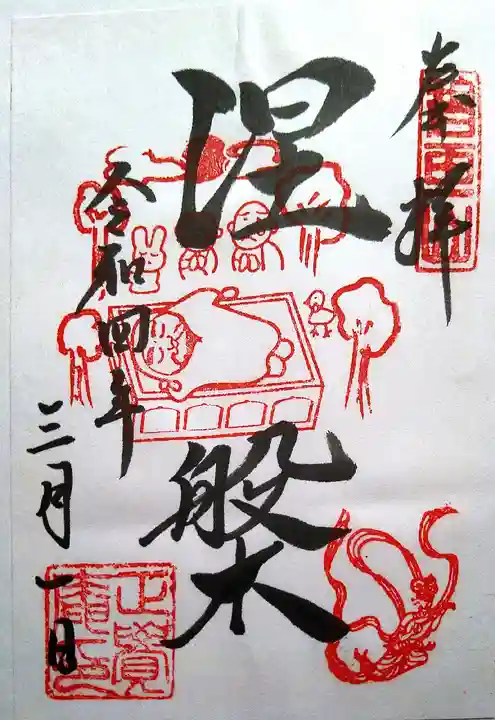 奉拝
涅槃
令和四年
三月一日
正覚